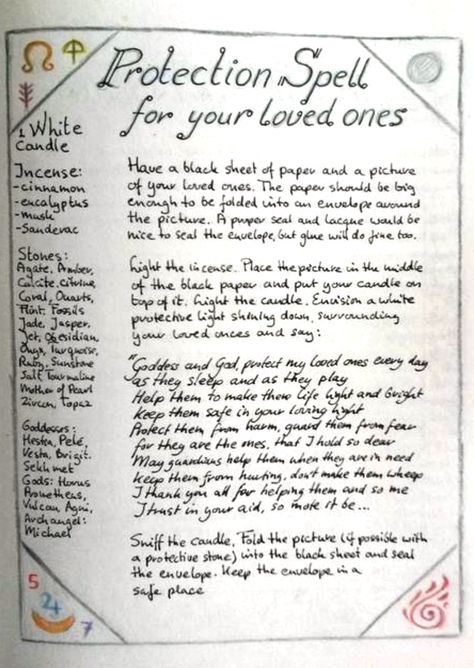 Protection Spell
for your loved ones
1 White
Candle
Incense:
-cinnamon
-eucalyptus
-musk
-Sanderac
Stones:
Agate, Amber,
Calcite, Citrine,
Coral, Quarts,
Flint, Fossils
Jade, Jasper,
Jet, Obsidian,
Onyx, Turquoise,
Ruby, Sunstone
Salt, Tourmaline
Mother of Pearl
Zircon, Topaz
Goddesses:
Hestia, Pele,
Vesta, Brigit.
Sekhmet
Gods: Horus
Prometheus,
Vulcan, Agni,
Archangel:
Michael
Have a black sheet of paper and a picture
of your loved ones. The paper should be big
enough to be folded into an envelope around
the picture. A proper seal and lacque would be
nice to seal the envelope, but glue will do fine too.
Light the incense. Place the picture in the middle
of the black paper and put your candle on
top of it. Light the candle. Envision a white
protective light shining down, surrounding
your loved onces and say:
"Goddess and God, protect my loved ones every day
as they sleep and as they play
Help them to make their life light and bright
Keep them safe in your loving light
Protect them from harm, guard them from fear
for they are the ones, that I hold so dear
May guardians help them when they are in need
keep them from hurting, don't make them wheep
I thank you all for helping them and so me
I trust in your aid, so mote it be...
Sniff the candle, Fold the picture (if possible with
a protective stone) into the black sheet and seal
the envelope. Keep the envelope in a
safe place
5
24
7